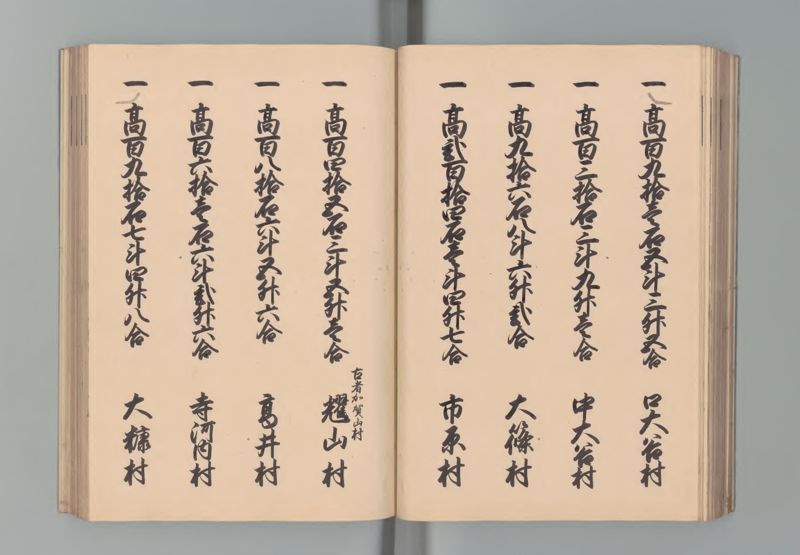 一 高百九拾壱石五斗三升五合 口大谷村
一 高百三拾石三斗九升壱合 中大谷村
一 高九拾六石八斗六升弐合 大篠村
一 高弐百拾四石壱斗四升七合 市原村
古者加賀山村
一 高百四拾五石三斗五升壱合 耀山村
一 高百八拾石六斗五升六合 高井村
一 高百六拾壱石六斗弐升六合 寺河内村
一 高百九拾石七斗四升八合 大糠村